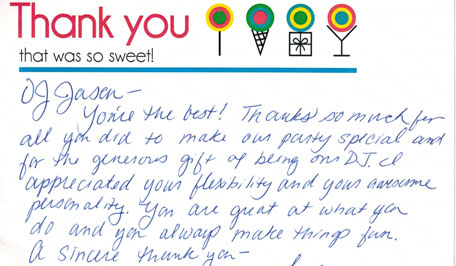 Thank you
that was so sweet!
DJ Jason -
You're the best! Thanks so much for
all you did to make our party special and
for the generous gift of being our D.J. I
appreciated your flexibility and your awesome
personality. You are great at what you
do and you always make things fun.
A sincere thank you -